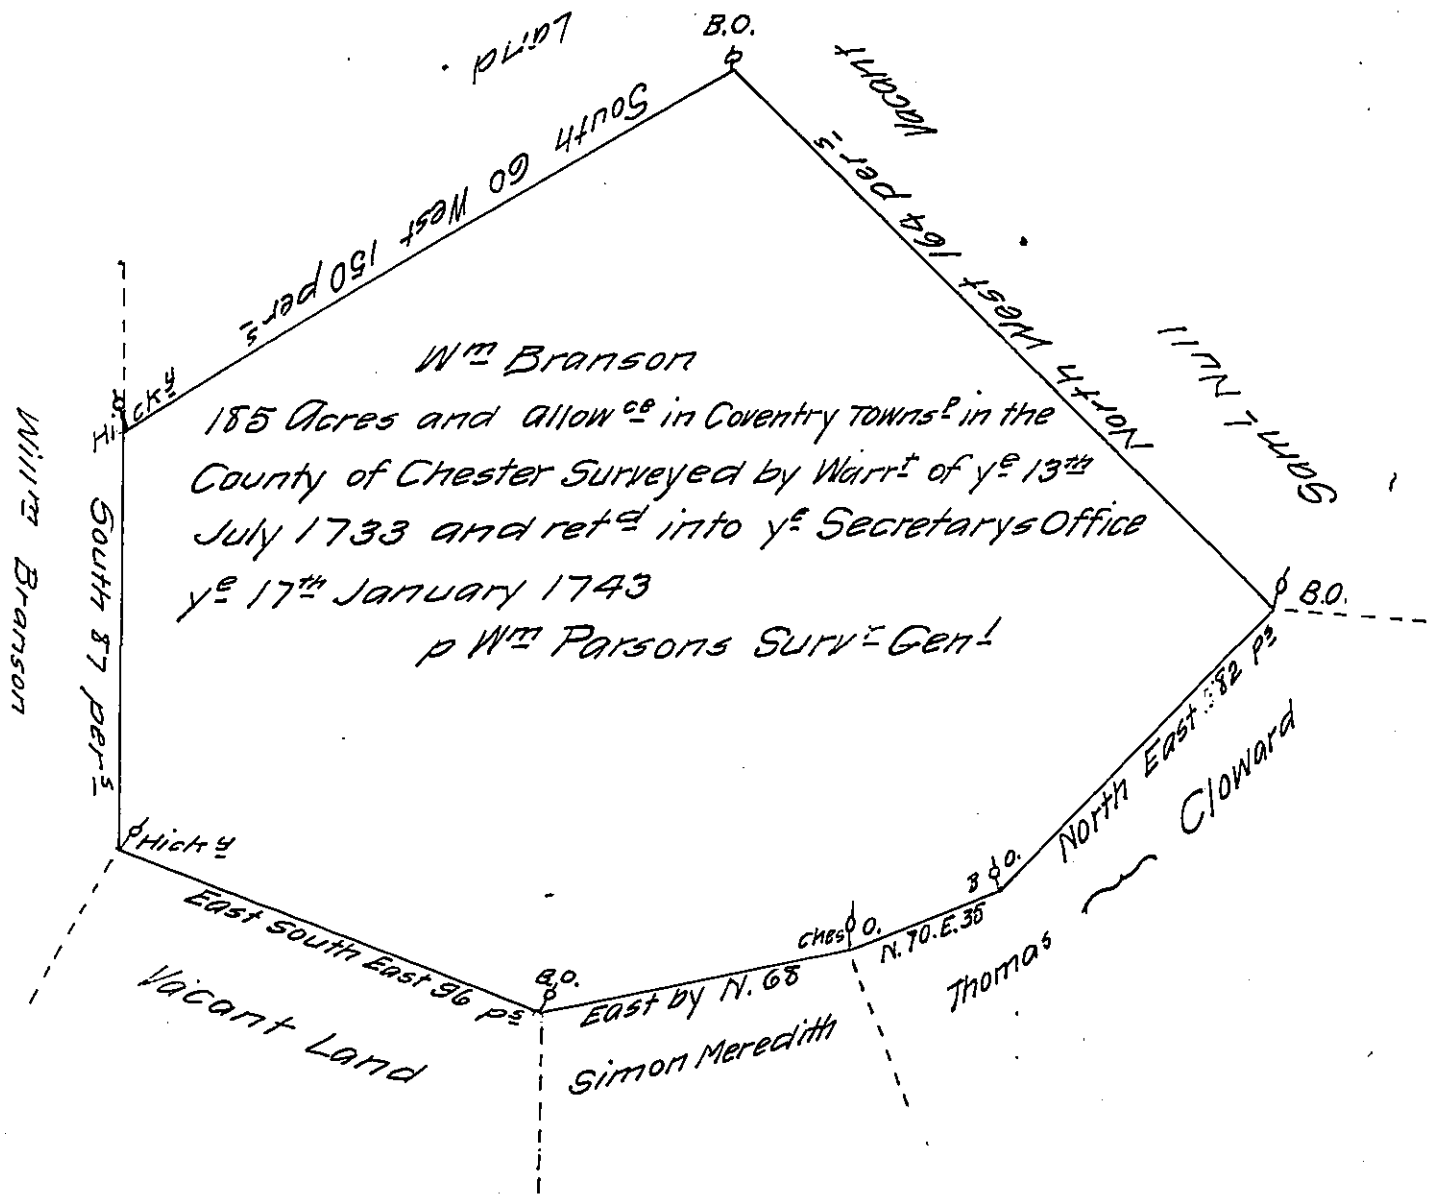 B.O.
Land
Vacant
South 60 West 150 perˢ
North West 164 perˢ
Samˡ Null
Hickʸ
Wᵐ Branson
185 Acres and allowᶜᵉ in Coventry Townsᵖ in the
County of Chester Surveyed by Warrᵗ of yᵉ 13ᵗʰ
July 1733 and retᵈ into yᵉ Secretarys Office
yᵉ 17ᵗʰ January 1743
p Wᵐ Parsons Survʳ Genˡ
Willᵐ Branson
South 87 perˢ
B.O.
North East 82 Pˢ
Thomas Cloward
Hickʸ
East South East 96 pˢ
Vacant Land
B.O.
East by N. 68
Simon Meredith
Ches O.
N. 70. E. 35
B O.